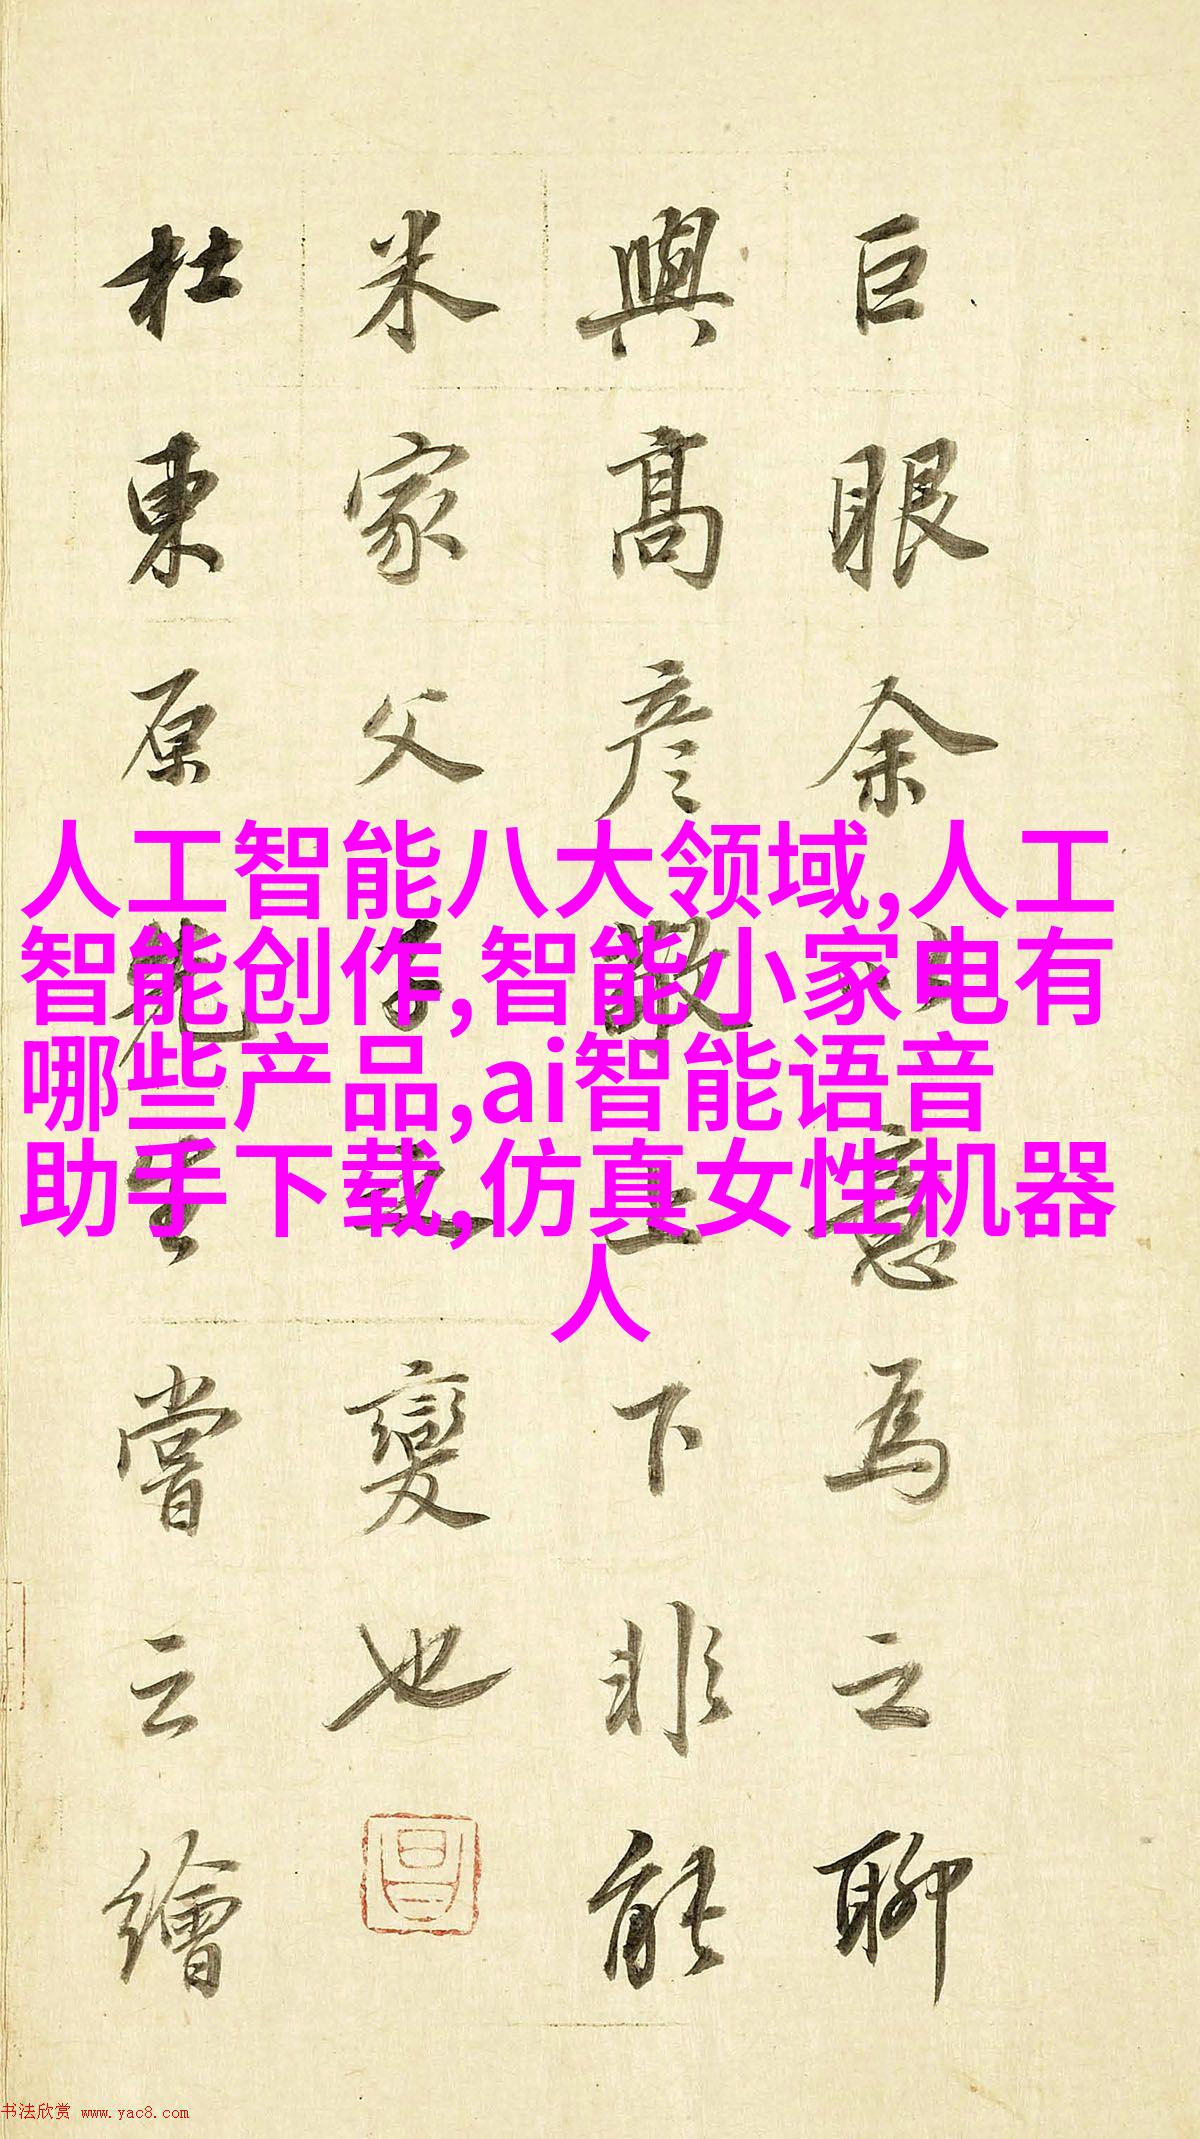 巨眼余意為之聊
與高彥敬上下非能
米家父子之變也
杜東原先生嘗云繪
人工智能八大领域,人工
智能创作,智能小家电有
哪些产品,ai智能语音
助手下载,仿真女性机器
人
书法欣赏 www.yac8.com